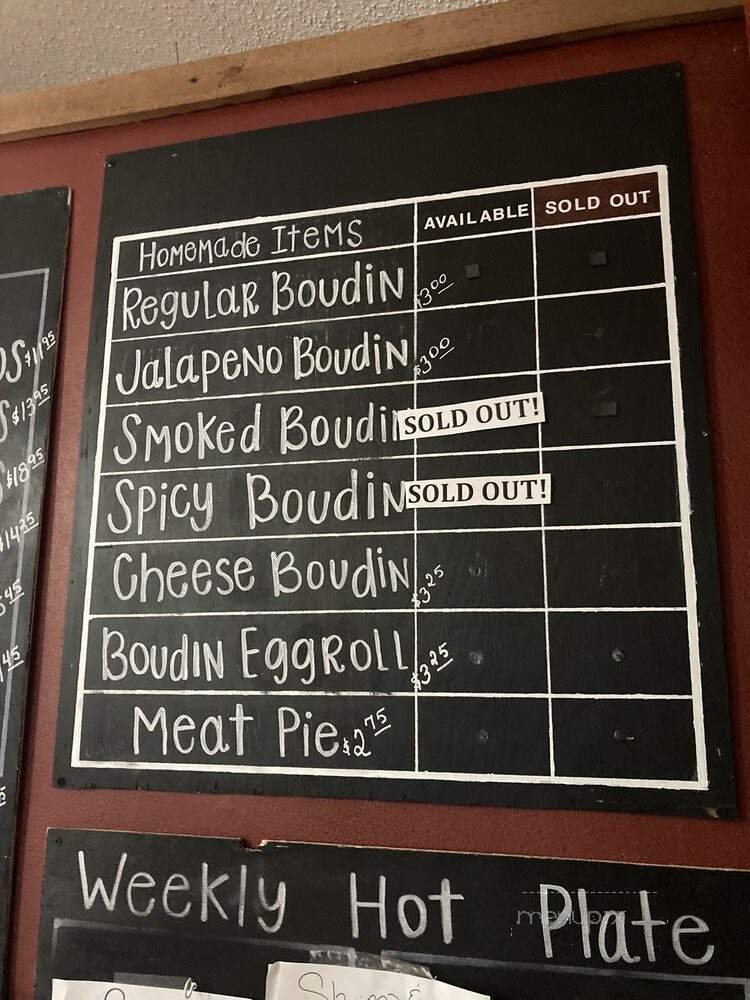 Homemade Items AVAILABLE SOLD OUT
Regular Boudin $3.00
Jalapeno Boudin $3.00
Smoked Boudin SOLD OUT!
Spicy Boudin SOLD OUT!
Cheese Boudin $3.25
Boudin Eggroll $3.25
Meat Pie $2.75
$11.95
$13.95
$18.95
$14.25
Weekly Hot Plate
menupix